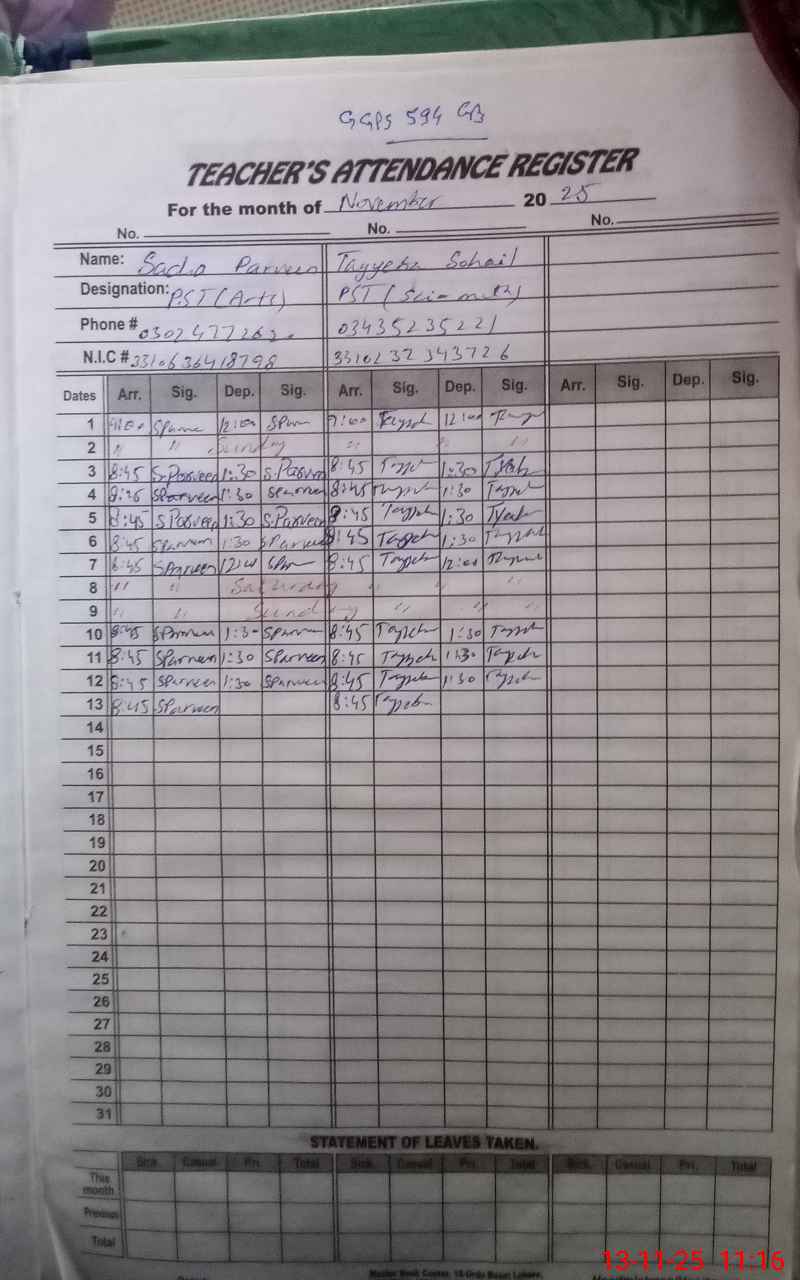 GGPS 594 GB
TEACHER'S ATTENDANCE REGISTER
For the month of November 20 25
No. No. No.
Name: Sadia Parveen Tayyeba Sohail
Designation: PST (Arts) PST (Sci math)
Phone # 03435235221
N.I.C # 3310636418798 3310232343726
Dates Arr. Sig. Dep. Sig. Arr. Sig. Dep. Sig. Arr. Sig. Dep. Sig.
1 12:00 9:00 12:00
2 " " Sunday " " "
3 8:45 S.Parveen 1:30 S.Parveen 8:45 1:30
4 SParveen 1:30 SParveen 8:45 1:30
5 8:45 S Parveen 1:30 S.Parveen 8:45 1:30
6 8:45 SParveen 1:30 SParveen 8:45 1:30
7 8:45 SParveen 12:00 8:45 12:00
8 " " Saturday " " "
9 " " Sunday " " "
10 8:45 SParveen 1:30 SParveen 8:45 1:30
11 8:45 SParveen 1:30 SParveen 8:45 1:30
12 8:45 SParveen 1:30 SParveen 8:45 1:30
13 8:45 SParveen 8:45
14
15
16
17
18
19
20
21
22
23
24
25
26
27
28
29
30
31
STATEMENT OF LEAVES TAKEN.
Sick. Casual Pri. Total Sick. Casual Pri. Total Sick. Casual Pri. Total
This month
Previous
Total
13-11-25 11:16